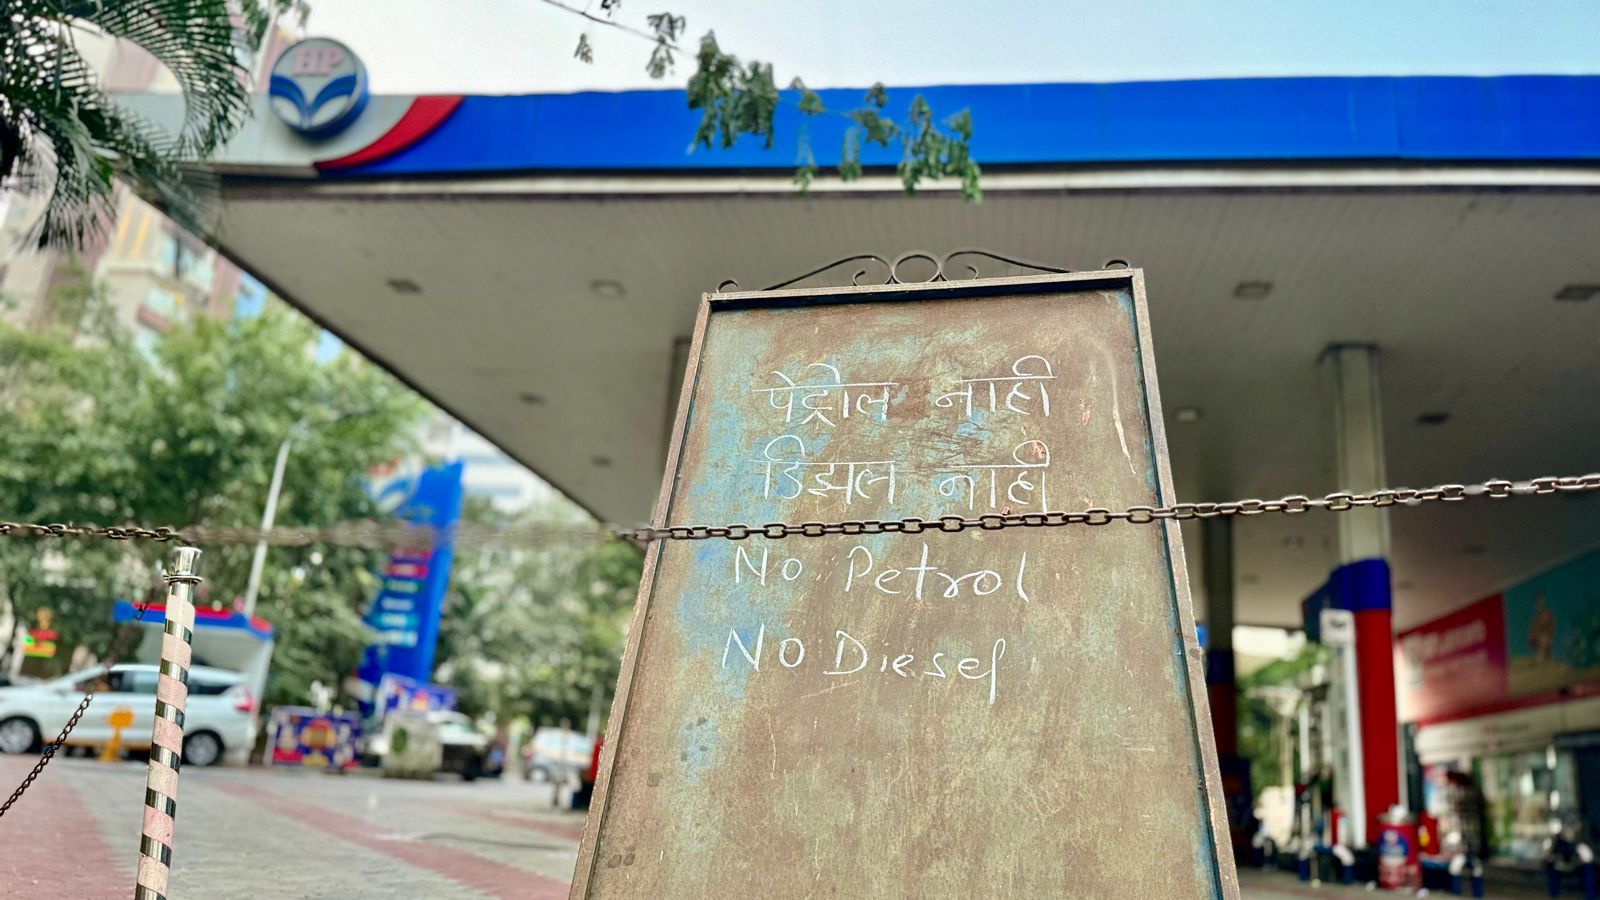 HP
पेट्रोल नाही
डिझल नाही
No Petrol
No Diesel